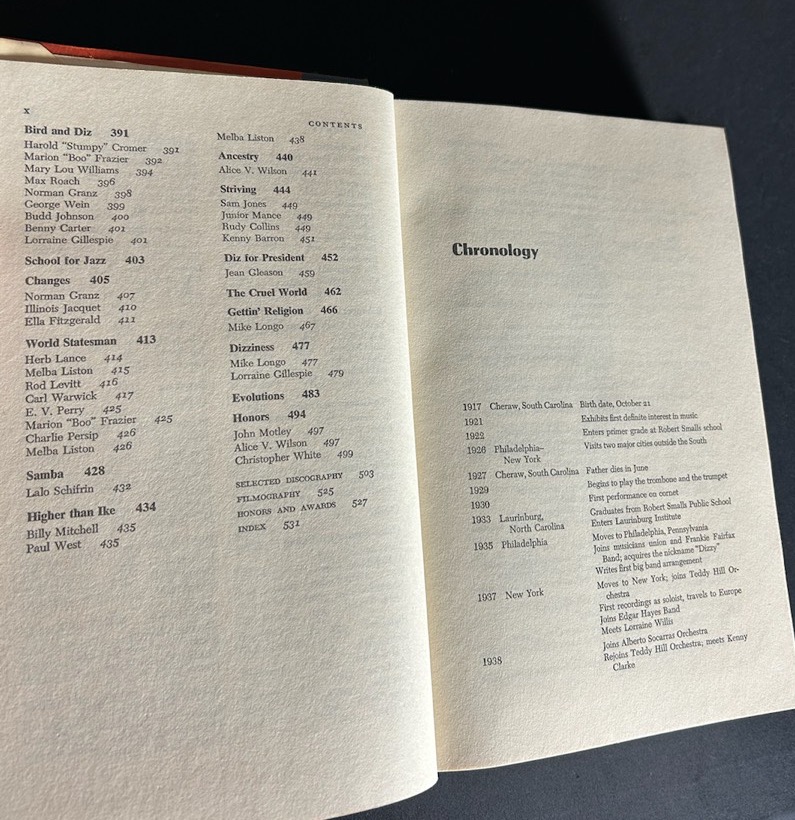 x
CONTENTS
Bird and Diz 391
Harold "Stumpy" Cromer 391
Marion "Boo" Frazier 392
Mary Lou Williams 394
Max Roach 396
Norman Granz 398
George Wein 399
Budd Johnson 400
Benny Carter 401
Lorraine Gillespie 401
School for Jazz 403
Changes 405
Norman Granz 407
Illinois Jacquet 410
Ella Fitzgerald 411
World Statesman 413
Herb Lance 414
Melba Liston 415
Rod Levitt 416
Carl Warwick 417
E. V. Perry 425
Marion "Boo" Frazier 425
Charlie Persip 426
Melba Liston 426
Samba 428
Lalo Schifrin 432
Higher than Ike 434
Billy Mitchell 435
Paul West 435
Melba Liston 438
Ancestry 440
Alice V. Wilson 441
Striving 444
Sam Jones 449
Junior Mance 449
Rudy Collins 449
Kenny Barron 451
Diz for President 452
Jean Gleason 459
The Cruel World 462
Gettin' Religion 466
Mike Longo 467
Dizziness 477
Mike Longo 477
Lorraine Gillespie 479
Evolutions 483
Honors 494
John Motley 497
Alice V. Wilson 497
Christopher White 499
SELECTED DISCOGRAPHY 503
FILMOGRAPHY 525
HONORS AND AWARDS 527
INDEX 531
Chronology
1917 Cheraw, South Carolina Birth date, October 21
1921 Exhibits first definite interest in music
1922 Enters primer grade at Robert Smalls school
1926 Philadelphia– Visits two major cities outside the South
New York
1927 Cheraw, South Carolina Father dies in June
1929 Begins to play the trombone and the trumpet
1930 First performance on cornet
1933 Laurinburg, Graduates from Robert Smalls Public School
North Carolina Enters Laurinburg Institute
1935 Philadelphia Moves to Philadelphia, Pennsylvania
Joins musicians union and Frankie Fairfax
Band; acquires the nickname "Dizzy"
Writes first big band arrangement
1937 New York Moves to New York; joins Teddy Hill Or-
chestra
First recordings as soloist, travels to Europe
Joins Edgar Hayes Band
Meets Lorraine Willis
1938 Joins Alberto Socarras Orchestra
Rejoins Teddy Hill Orchestra; meets Kenny
Clarke